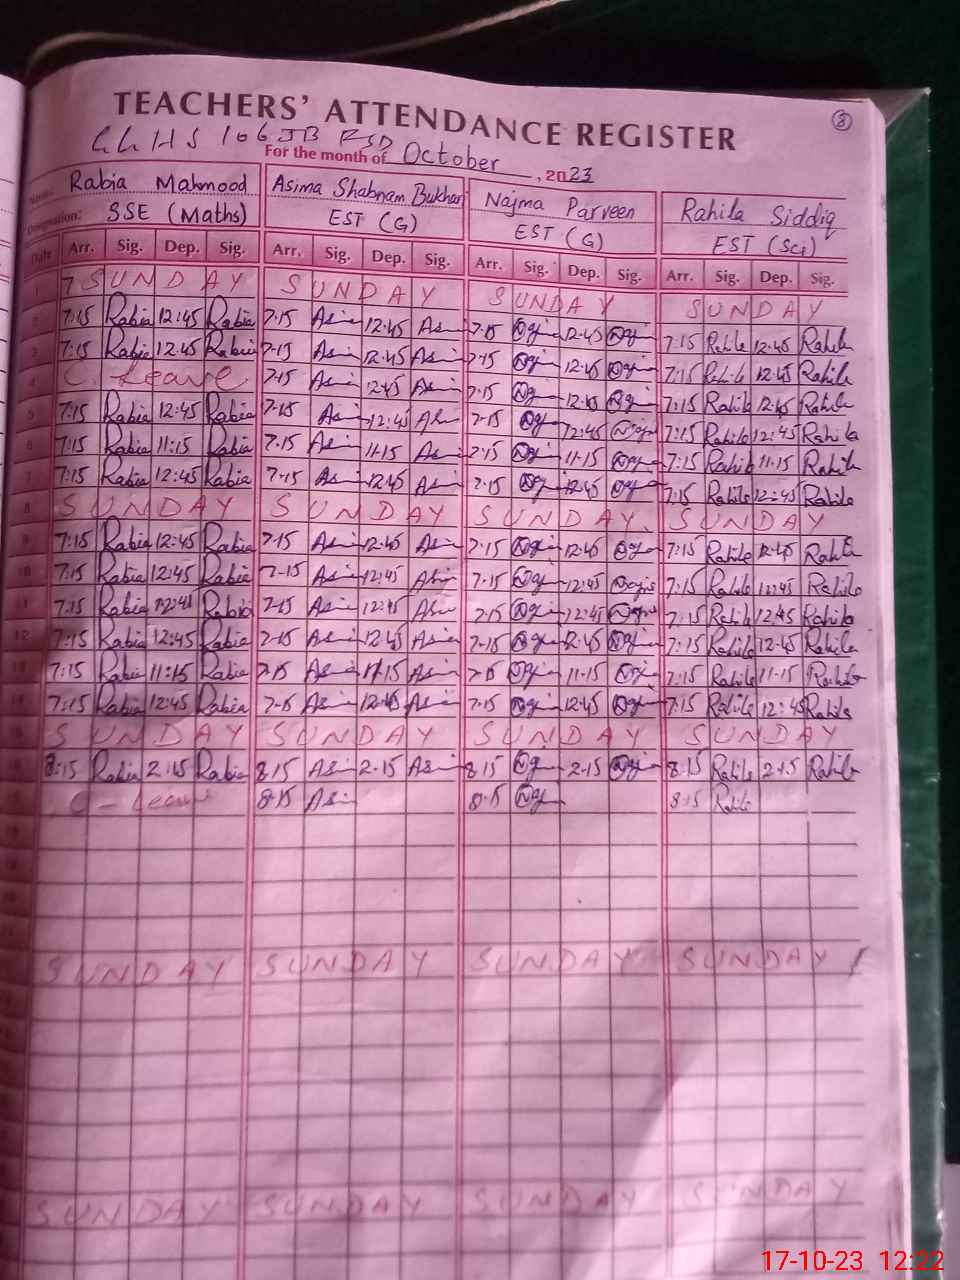 TEACHERS' ATTENDANCE REGISTER
8
GGHS 106 JB FSD
For the month of October, 2023
Name: Rabia Mahmood Asima Shabnam Bukhari Najma Parveen Rahila Siddiq
Designation: SSE (Maths) EST (G) EST (G) EST (Sci)
Date Arr. Sig. Dep. Sig. Arr. Sig. Dep. Sig. Arr. Sig. Dep. Sig. Arr. Sig. Dep. Sig.
1 SUNDAY SUNDAY SUNDAY SUNDAY
2 7:15 Rabia 12:45 Rabia 7-15 Asi 12:45 Asi 7-15 12-45 7:15 Rahila 12:45 Rahila
3 7:15 Rabia 12:45 Rabia 7-15 Asi 12:45 Asi 7-15 12:45 7:15 Rahila 12:45 Rahila
4 C. Leave 7-15 Asi 12:45 Asi 7-15 12:45 7:15 Rahila 12:45 Rahila
5 7:15 Rabia 12:45 Rabia 7-15 Asi 12:45 Asi 7-15 12:45 7:15 Rahila 12:45 Rahila
6 7:15 Rabia 11:15 Rabia 7-15 Asi 11-15 Asi 7-15 11-15 7:15 Rahila 11-15 Rahila
7 7:15 Rabia 12:45 Rabia 7-15 Asi 12:45 Asi 7-15 12:45 7:15 Rahila 12:45 Rahila
8 SUNDAY SUNDAY SUNDAY SUNDAY
9 7:15 Rabia 12:45 Rabia 7-15 Asi 12:45 Asi 7-15 12:45 7:15 Rahila 12:45 Rahila
10 7:15 Rabia 12:45 Rabia 7-15 Asi 12:45 Asi 7-15 12:45 7:15 Rahila 12:45 Rahila
11 7:15 Rabia Rabia 7-15 Asi 12:45 Asi 7-15 12:45 7:15 Rahila 12:45 Rahila
12 7:15 Rabia 12:45 Rabia 7-15 Asi 12:45 Asi 7-15 12:45 7:15 Rahila 12-45 Rahila
13 7:15 Rabia 11:15 Rabia 7-15 Asi 11-15 Asi 7-15 11-15 7:15 Rahila 11-15 Rahila
14 7:15 Rabia 12:45 Rabia 7-15 Asi 12:45 Asi 7-15 12:45 7:15 Rahila 12:45 Rahila
15 SUNDAY SUNDAY SUNDAY SUNDAY
16 8:15 Rabia 2:15 Rabia 8-15 Asi 2-15 Asi 8-15 2-15 8:15 Rahila 2:15 Rahila
C-Leave 8-15 Asi 8-15 8:15 Rahila
SUNDAY SUNDAY SUNDAY SUNDAY
SUNDAY SUNDAY SUNDAY SUNDAY
17-10-23 12:22